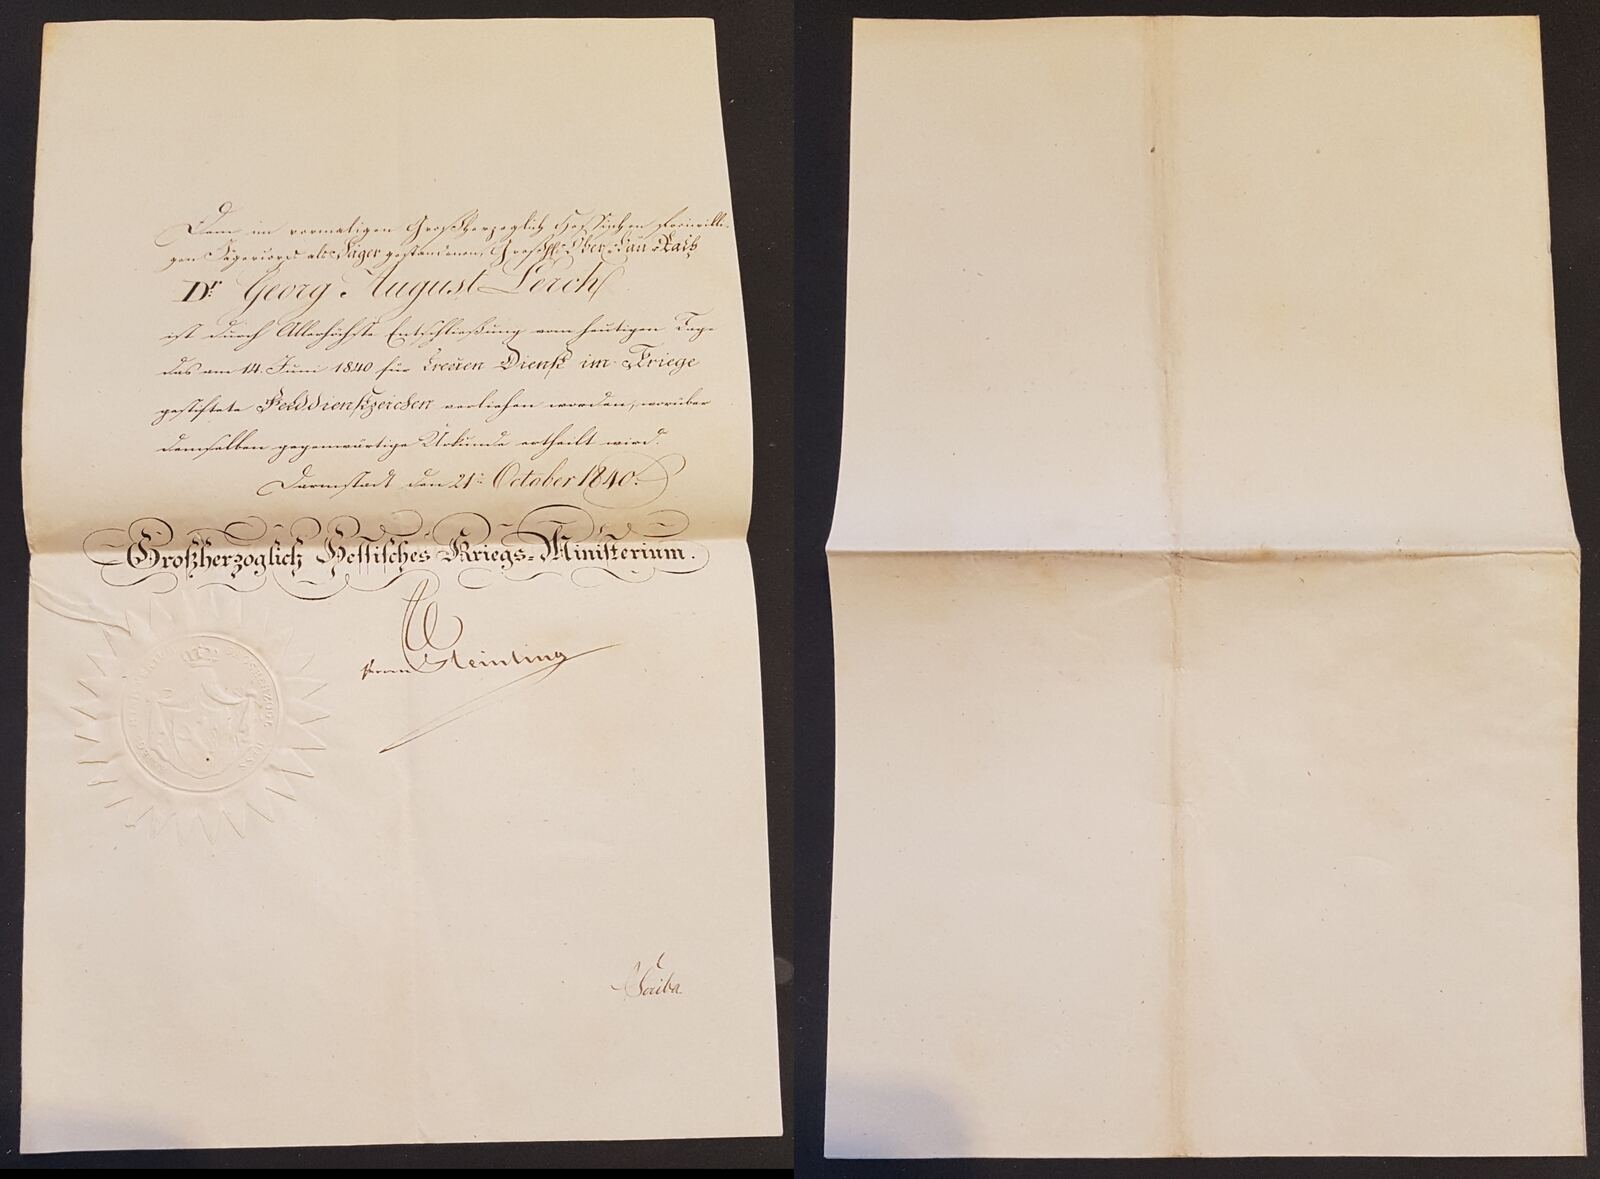 Dem im vormaligen Großherzoglich Hessischen freiwilli-
gen Jägercorps als Jäger gestandenen, Großhl: Ober-Bau-Rath
Dr. Georg August Lerch
ist durch Allerhöchste Entschließung vom heutigen Tage
das am 14. Juni 1840 für treuen Dienst im Kriege
gestiftete Felddienstzeichen verliehen worden, worüber
demselben gegenwärtige Urkunde ertheilt wird.
Darmstadt den 21n October 1840.
Großherzoglich Hessisches Kriegs-Ministerium.
Steinling
Scriba